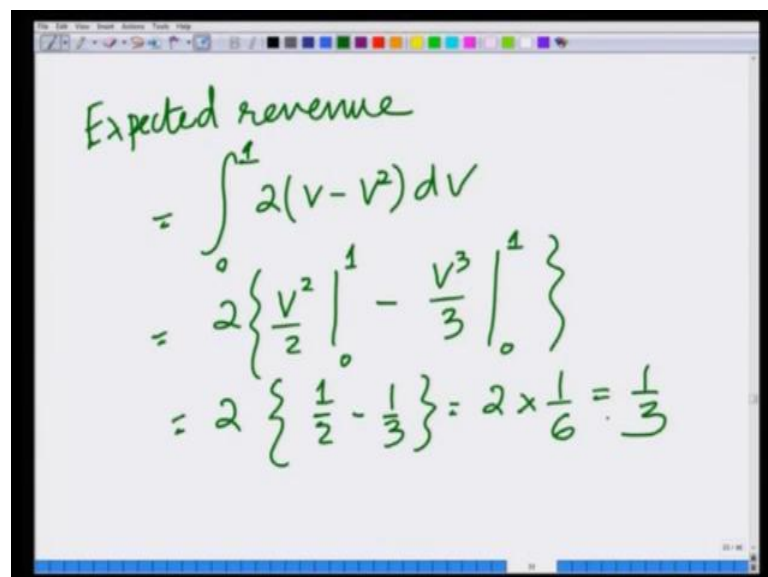 File Edit View Insert Actions Tools Help
Expected revenue
= ∫₀¹ 2(V - V²) dV
= 2{ V²/2 |₀¹ - V³/3 |₀¹ }
= 2 { 1/2 - 1/3 } = 2 × 1/6 = 1/3